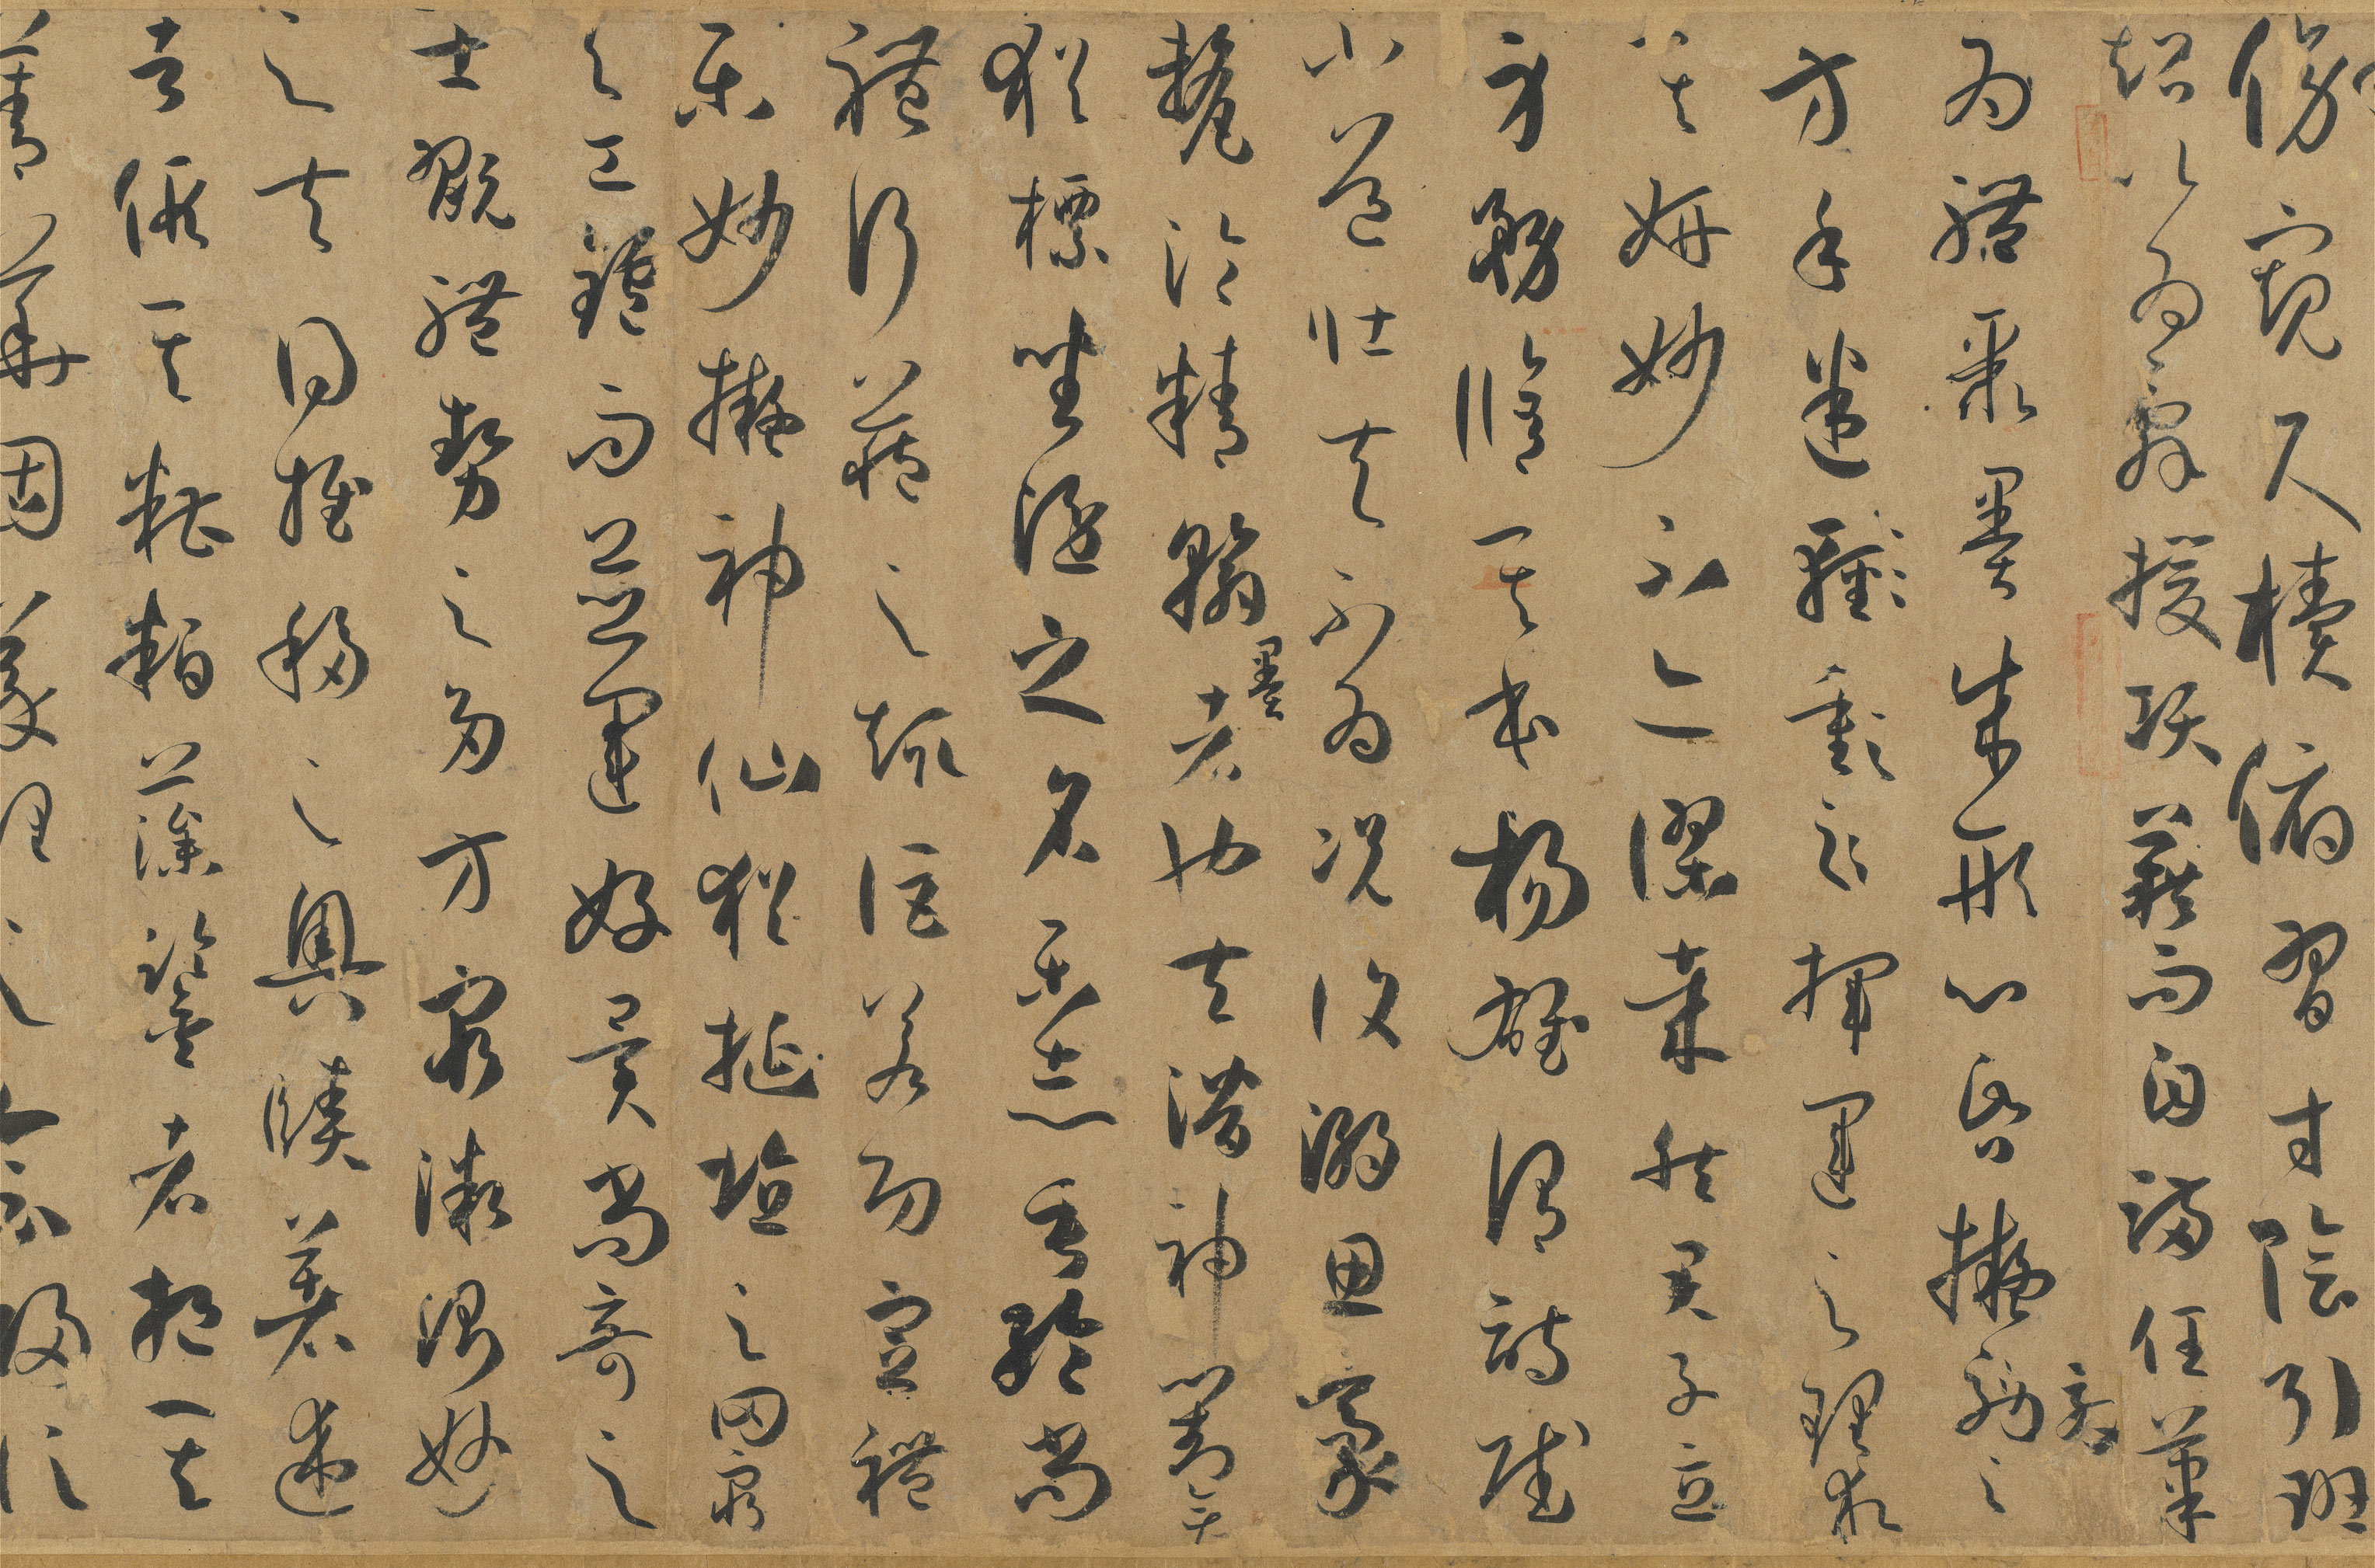 傍窺尺牘俯習寸陰引班
超以為辭援項籍而自滿任筆
為體聚墨成形心昏擬效之
方手迷揮運之理求
其妍妙不亦謬哉然君子立
身務脩其本楊雄謂詩賦
小道壯夫不為況復溺思豪
氂淪精翰墨者也夫潛神對弈
猶標坐隱之名樂志垂綸尚
體行藏之趣詎若功宣禮
樂妙擬神仙猶埏埴之罔窮
與工鑪而並運好異尚奇之
士翫體勢之多方窮微測妙
之夫得推移之奧賾著述
者假其糟粕藻鑒者挹其
菁華固義理之會歸信